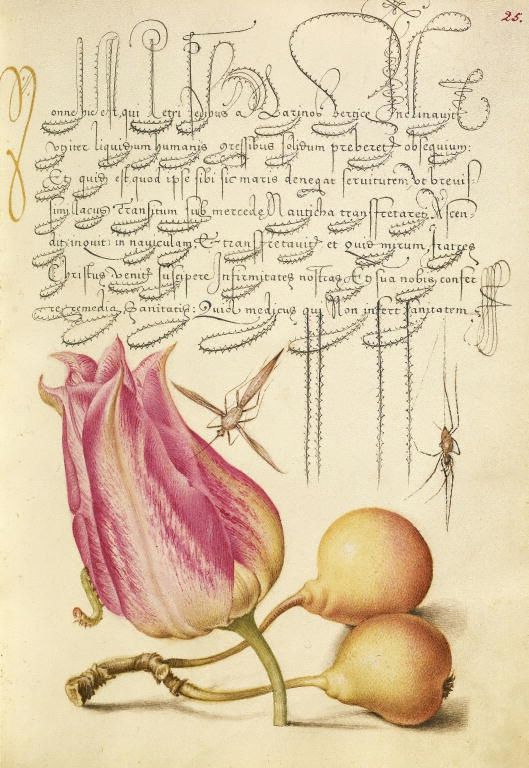 25.
onne hic est, qui Petri pedibus a Marinos vertice Inclinavit
Vt iter liquidum humanis gressibus solidum preberet obsequium:
Et quid est quod ipse sibi sic maris denegat servitutem Vt brevis-
simi lacus Transitum sub mercede Nautica transfretaret. Ascen-
dit inquit in naviculam, Et transfretavit et Quid mirum, fratres
Christus venit suscipere Infirmitates nostras Et sua nobis confer
re remedia Sanitatis: Quia medicus qui Non infert sanitatem